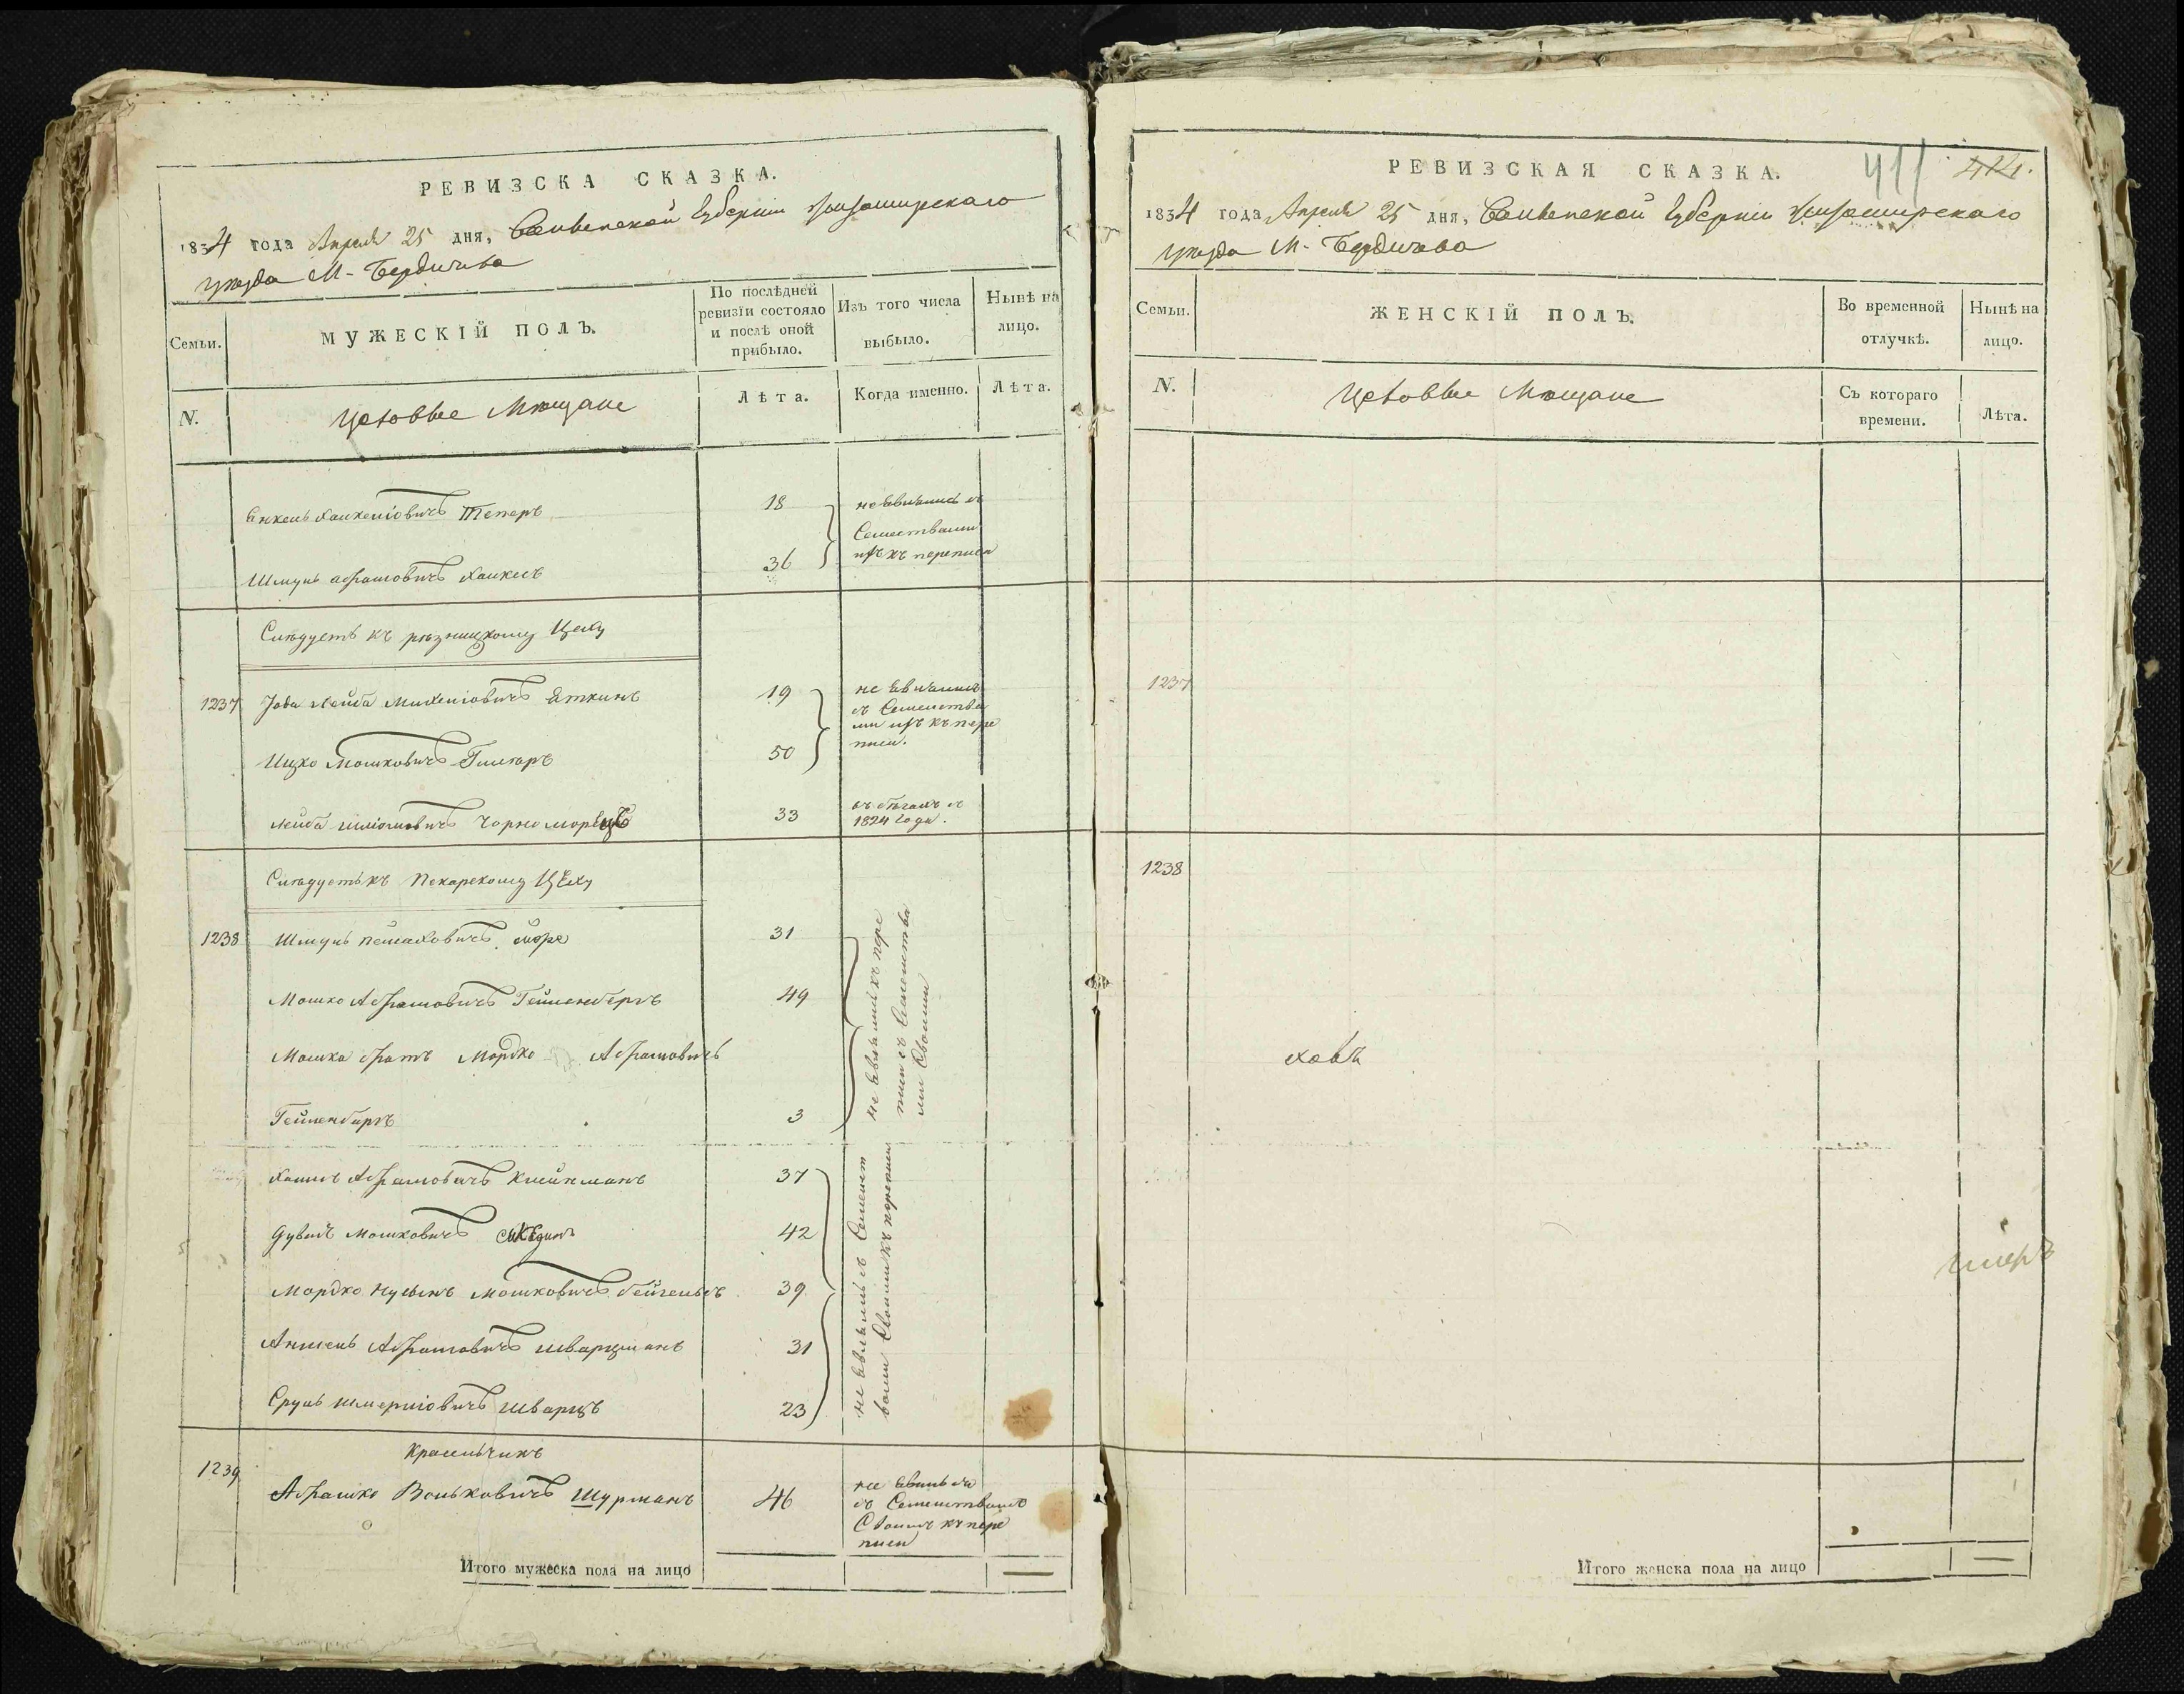 РЕВИЗСКА СКАЗКА.
1834 года Апреля 25 дня, Волынской Губернии Житомирскаго
уезда М. Бердичева
Семьи.
МУЖЕСКІЙ ПОЛЪ.
По послѣдней
ревизіи состояло
и послѣ оной
прибыло.
Изъ того числа
выбыло.
Нынѣ на
лицо.
N.
Цеховые Мещане
Лѣта.
Когда именно.
Лѣта.
Янкель Хаикелiовичъ Теперъ
18
не явились съ
Семействами
ихъ къ переписи
Шмуль абрамовичъ Хаикесъ
36
Следуетъ къ резницкому Цеху
1237
Лейба Михелiовичъ Яткинъ
19
не явились
съ Семейства
ми ихъ къ пере
писи.
Ицко Мошковичъ
50
Лейба шлiомовичъ Чорноморецъ
33
въ бегахъ съ
1824 года.
Следуетъ къ Пекарскому Цеху
1238
Шмуль пейсаховичъ
31
не явились къ пере
писи съ Семейства
ми своими
Мошко Абрамовичъ Гейленбергъ
49
Мошка братъ Мордко Абрамовичъ
Гейленбергъ
3
Хаимъ Абрамовичъ Клейнманъ
37
не явились съ Семейст
вами своими къ переписи
Дувидъ Мошковичъ
42
Мордко Нусынъ Мошковичъ
39
Аншель Абрамовичъ шварцманъ
31
Сруль шмерлiовичъ шварцъ
23
Красильчикъ
1239
Абрамко Вольковичъ Шурманъ
46
не явился
съ Семействомъ
Своимъ къ пере
писи
Итого мужеска пола на лицо
—
РЕВИЗСКАЯ СКАЗКА.
411
1834 года Апреля 25 дня, Волынской Губернии Житомирскаго
уезда М. Бердичева
Семьи.
ЖЕНСКІЙ ПОЛЪ.
Во временной
отлучкѣ.
Нынѣ на
лицо.
N.
Цеховые Мещане
Съ котораго
времени.
Лѣта.
1237
1238
ховъ
Итого женска пола на лицо
—